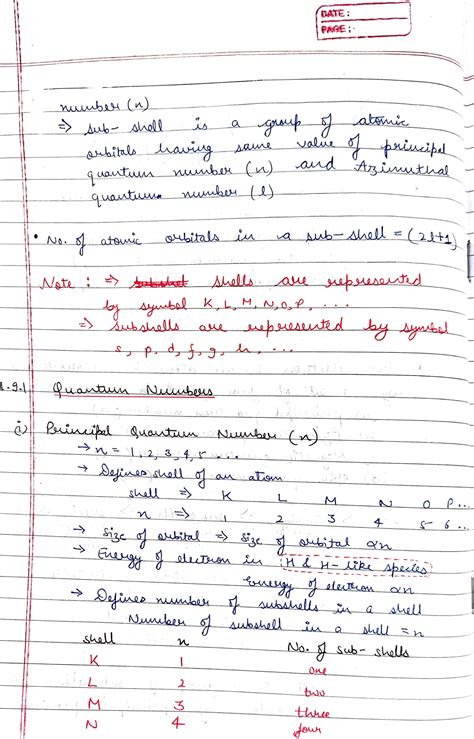 DATE:
PAGE:
number (n)
⇒ sub-shell is a group of atomic
orbitals having same value of principal
quantum number (n) and Azimuthal
quantum number (l)
• No. of atomic orbitals in a sub-shell = (2l+1)
Note : ⇒ subshel shells are represented
by symbol K, L, M, N, O, P, ...
⇒ subshells are represented by symbol
s, p, d, f, g, h, ...
1.9.1 Quantum Numbers
i) Principal Quantum Number (n)
→ n = 1, 2, 3, 4, 5 ...
→ Defines shell of an atom
shell ⇒ K L M N O P...
n ⇒ 1 2 3 4 5 6...
→ Size of orbital ⇒ Size of orbital αn
→ Energy of electron in H & H-like species
Energy of electron αn
→ Defines number of subshells in a shell
Number of subshell in a shell = n
shell n No. of sub-shells
K 1 one
L 2 two
M 3 three
N 4 four